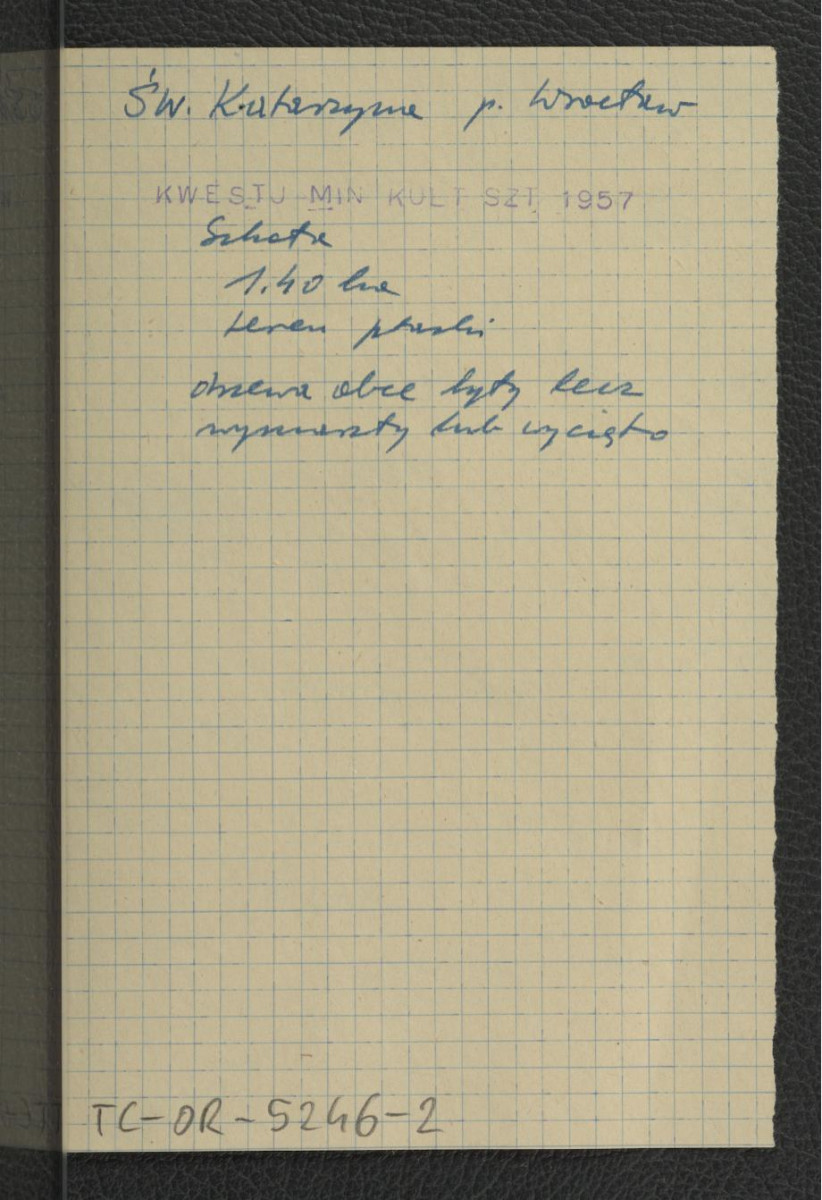 Św. Katarzyna p. Wrocław
KWESTJ MIN KULT SZT 1957
Szkoła
1.40 ha
teren płaski
drzewa obce były lecz
wymarzły lub wycięto
TC-OR-5246-2